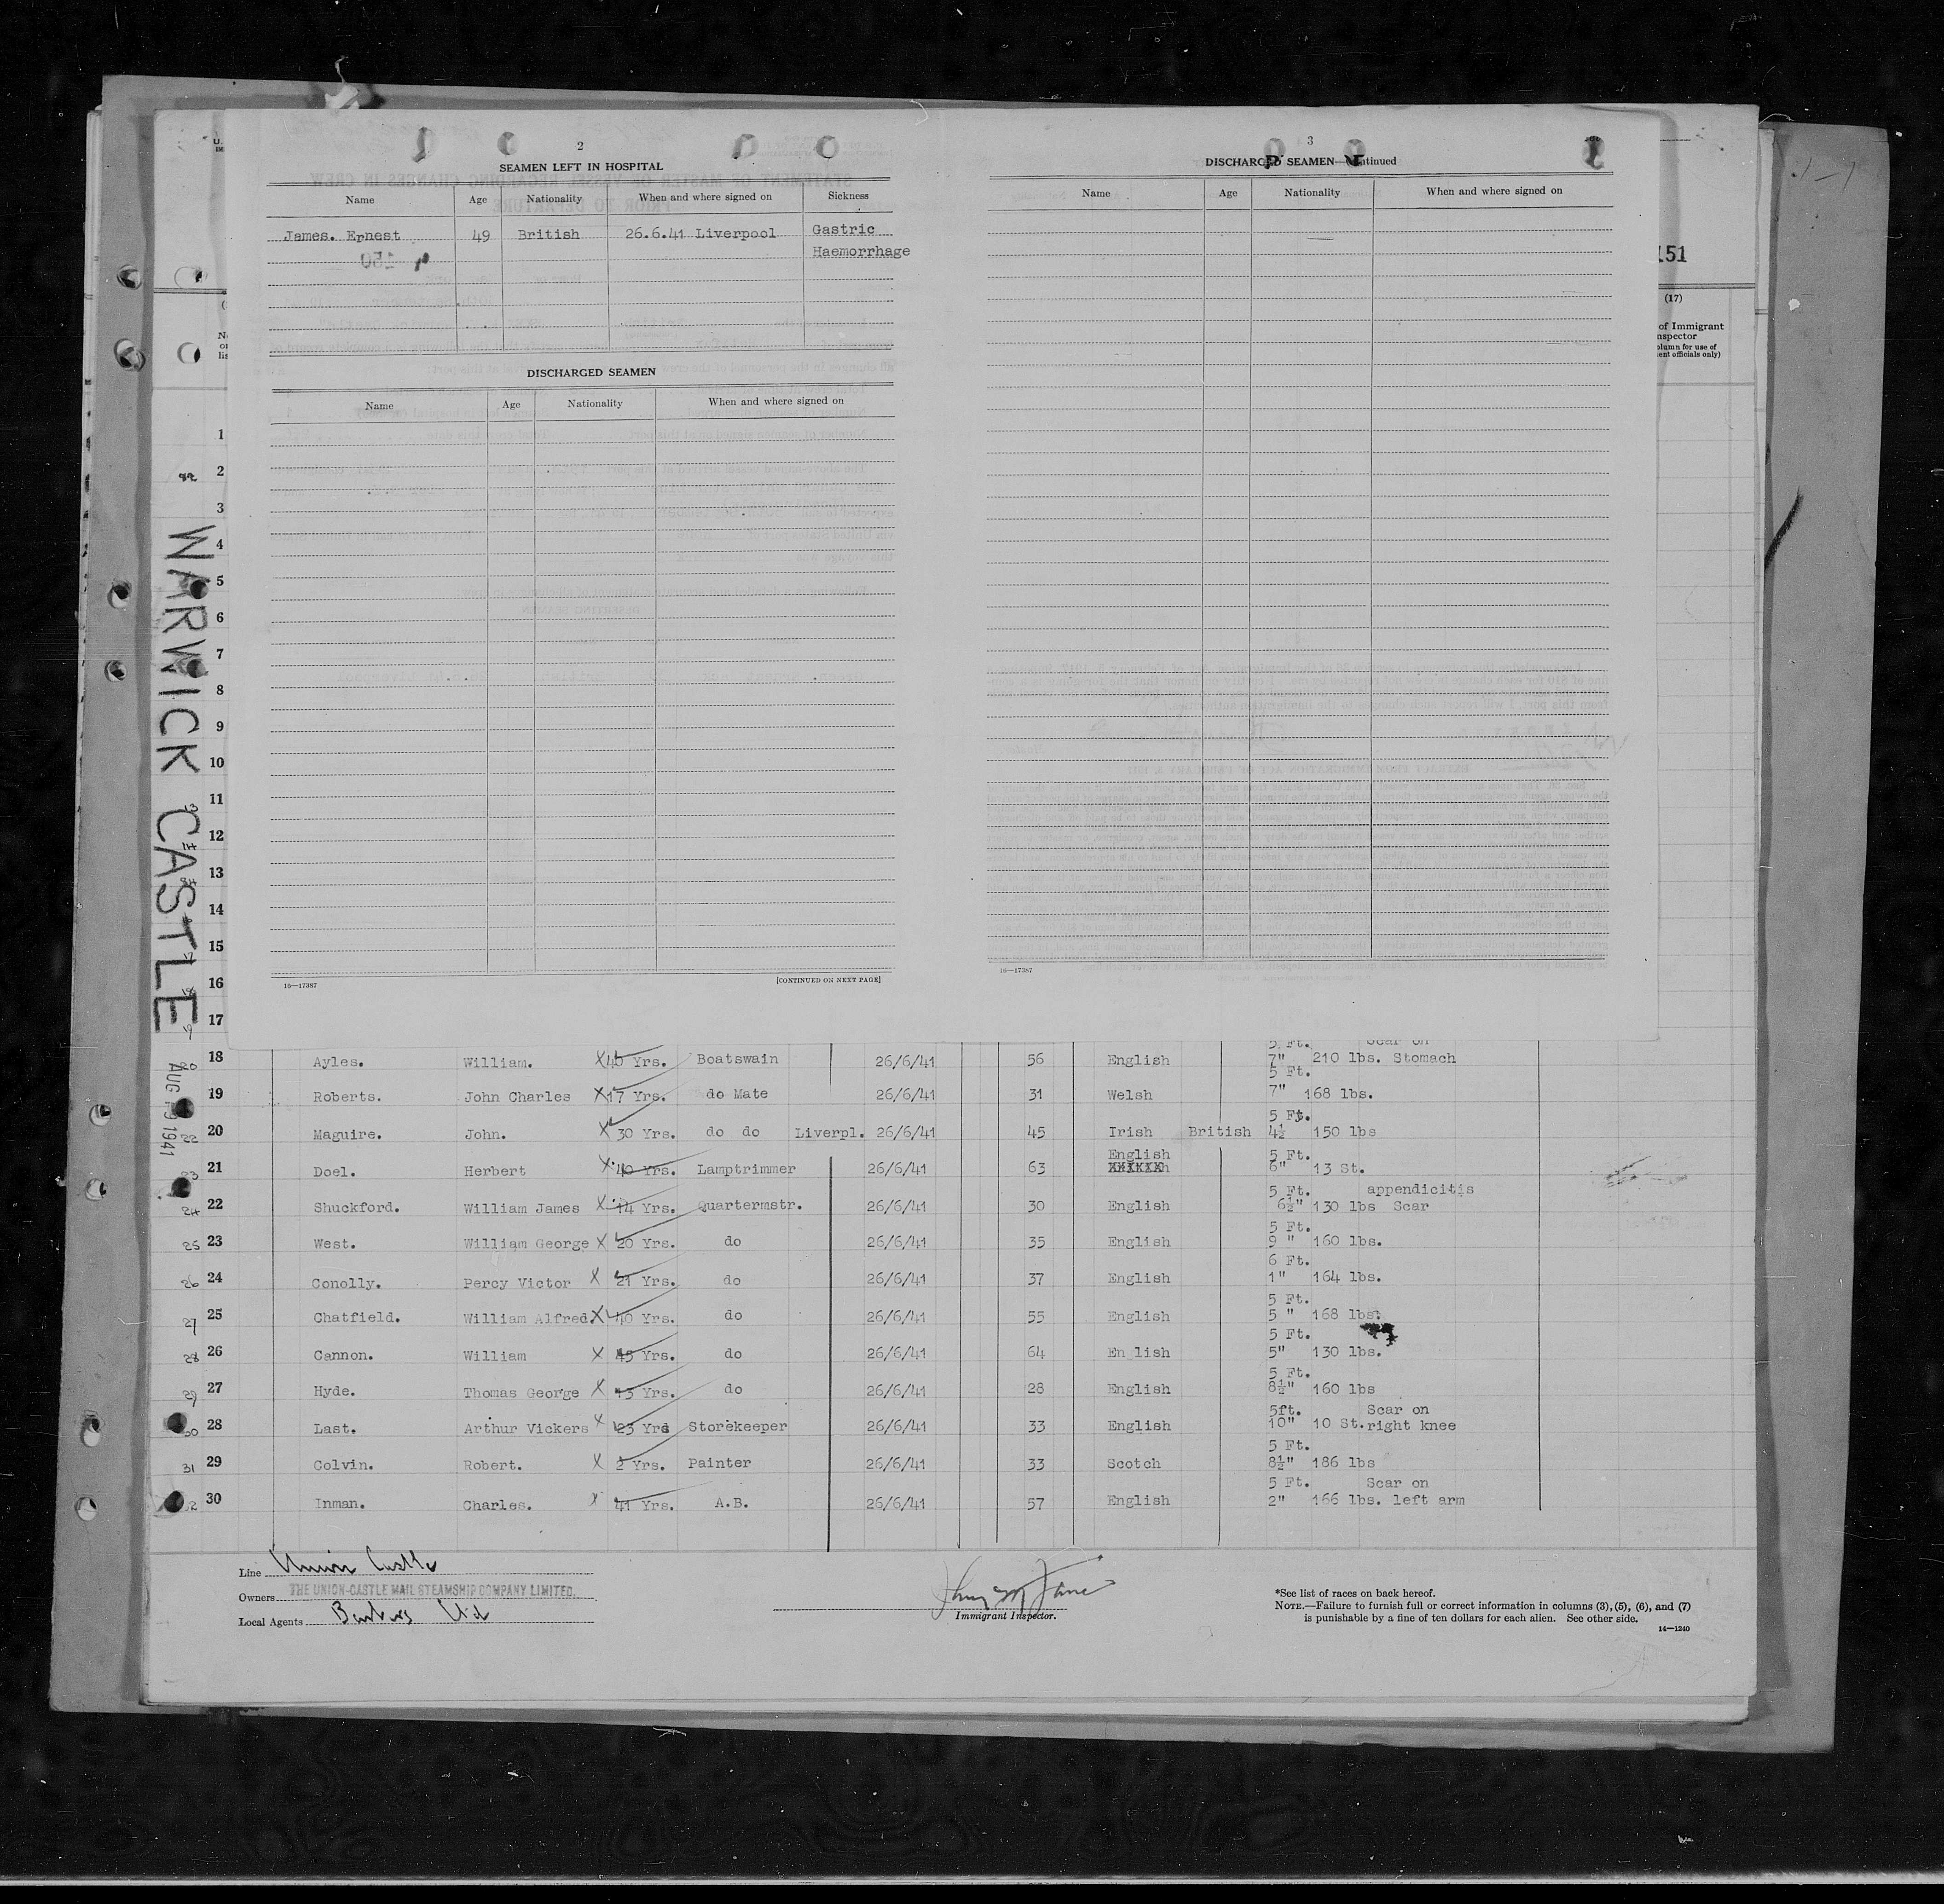 2
SEAMEN LEFT IN HOSPITAL
Name Age Nationality When and where signed on Sickness
James. Ernest 49 British 26.6.41 Liverpool Gastric
Haemorrhage
DISCHARGED SEAMEN
Name Age Nationality When and where signed on
16—17387 [CONTINUED ON NEXT PAGE]
3
DISCHARGED SEAMEN—Continued
Name Age Nationality When and where signed on
16—17387
151
(17)
of Immigrant
nspector
olumn for use of
ent officials only)
1
2
3
4
5
6
7
8
9
10
11
12
13
14
15
16
17
WARWICK CASTLE
AUG 1941
5 Ft. Scar on
18 Ayles. William. 40 Yrs. Boatswain 26/6/41 56 English 7" 210 lbs. Stomach
5 Ft.
19 Roberts. John Charles X 17 Yrs. do Mate 26/6/41 31 Welsh 7" 168 lbs.
5 Ft.
22 20 Maguire. John. X 30 Yrs. do do Liverpl. 26/6/41 45 Irish British 4½ 150 lbs
English 5 Ft.
23 21 Doel. Herbert X 40 Yrs. Lamptrimmer 26/6/41 63 6" 13 St.
5 Ft. appendicitis
24 22 Shuckford. William James X 14 Yrs. Quartermstr. 26/6/41 30 English 6½" 130 lbs Scar
5 Ft.
25 23 West. William George X 20 Yrs. do 26/6/41 35 English 9 " 160 lbs.
6 Ft.
26 24 Conolly. Percy Victor X 21 Yrs. do 26/6/41 37 English 1" 164 lbs.
5 Ft.
27 25 Chatfield. William Alfred. X 40 Yrs. do 26/6/41 55 English 5 " 168 lbs.
5 Ft.
28 26 Cannon. William X 45 Yrs. do 26/6/41 64 En lish 5" 130 lbs.
5 Ft.
29 27 Hyde. Thomas George X 13 Yrs. do 26/6/41 28 English 8½" 160 lbs
5ft. Scar on
30 28 Last. Arthur Vickers X 23 Yrs Storekeeper 26/6/41 33 English 10" 10 St. right knee
5 Ft.
31 29 Colvin. Robert. X 2 Yrs. Painter 26/6/41 33 Scotch 8½" 186 lbs
5 Ft. Scar on
32 30 Inman. Charles. X 41 Yrs. A.B. 26/6/41 57 English 2" 166 lbs. left arm
Line Union Castle
Owners THE UNION-CASTLE MAIL STEAMSHIP COMPANY LIMITED.
Local Agents
Immigrant Inspector.
*See list of races on back hereof.
NOTE.—Failure to furnish full or correct information in columns (3), (5), (6), and (7)
is punishable by a fine of ten dollars for each alien. See other side.
14—1240